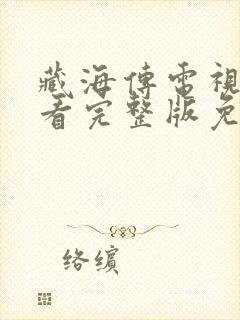 藏海傳電視
看完整版免
络缤